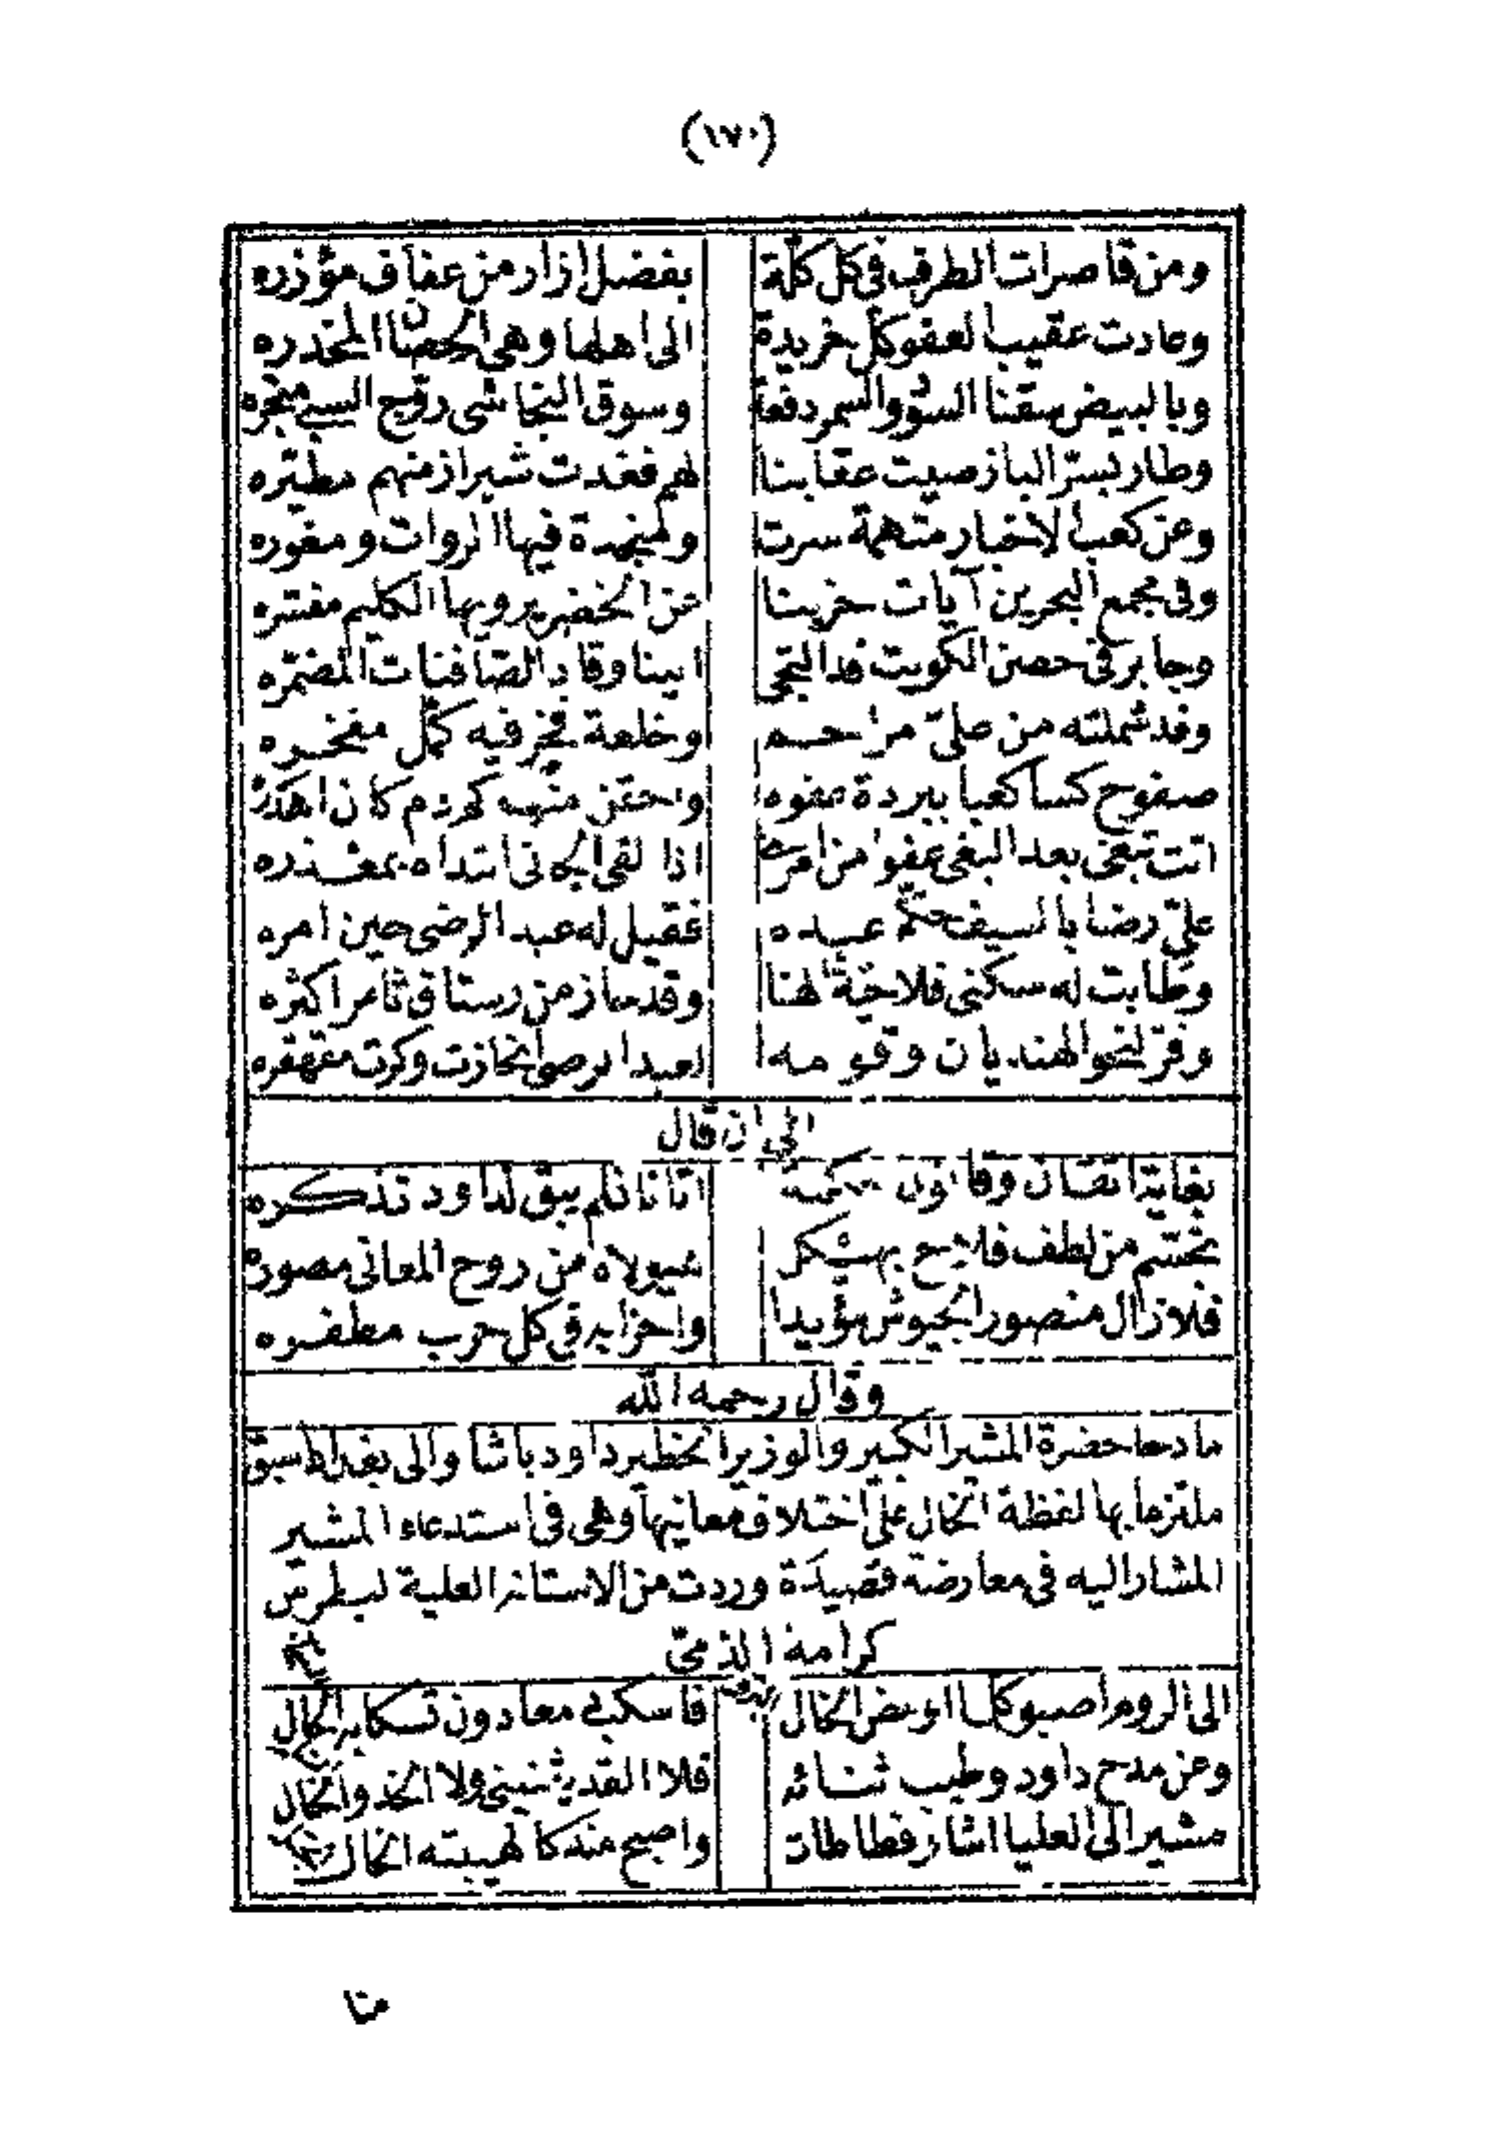 (١٧٠)
ومن قاصرات الطرف فى كل كلّة بفضل ازار من عفاف مؤزره
وعادت عقيب العفو كل خريدة الى اهلها وهى الحصان المخدره
وبالبيض سقنا السود والسمر دفعة وسوق النجاشى روّج السبى متجره
وطار بسرّ الباز صيت عقابنا لهم فغدت شيراز منهم مطيّره
وعن كعب الاخبار متهمة سرت ومنجدة فيها الروات ومغوره
وفى مجمع البحرين آيات حزبنا عن الخضر يرويها الكليم مفسّره
وجابر فى حصن الكويت قد التجى الينا وقاد الصّافنات المضمّره
وقد شملته من علىّ مراحم وخلعة فخر فيه كمّل مفخره
صفوح كسا كعبا ببردة عفوه واحقن منهم كم دم كان اهدره
اتت تبتغى بعد البغى عفوا من امرئ اذا لقى الجانى ابتداه بمعذره
علىّ رضا بالسيف حكّم عبده فقيل له عبد الرضى حين امره
وطابت له سكنى فلاحيّة الهنا وقد ماز من رستاق ثامر اكثره
وفرّ لنحو الهنديان وقومه لعبد الرضى انحازت وكرت مقهقره
الى ان قال
بغاية اتقان وقانون حكمة اتانا فلم يبق لداود تذكره
تجسّم من لطف فلاح بهيكل هيولاه من روح المعانى مصوره
فلا زال منصور الجيوش مؤيدا واحزابه فى كل حرب مظفره
وقال رحمه الله
مادحا حضرة المشير الكبير والوزير الخطير داود باشا والى بغداد سبق
ملتزما بها لفظة الخال على اختلاف معانيها وهى فى استدعاء المشير
المشار اليه فى معارضة قصيدة وردت من الاستانه العلية لبطرس
كرامة الذمّى
الى الروم اصبو كلما اومض الخال فاسكب دمعا دون تسكابه الخال
وعن مدح داود وطيب ثنائه فلا القد يثنينى ولا الخد والخال
مشير الى العليا اشار فطاطات واصبح مندكا لهيبته الخال
منا